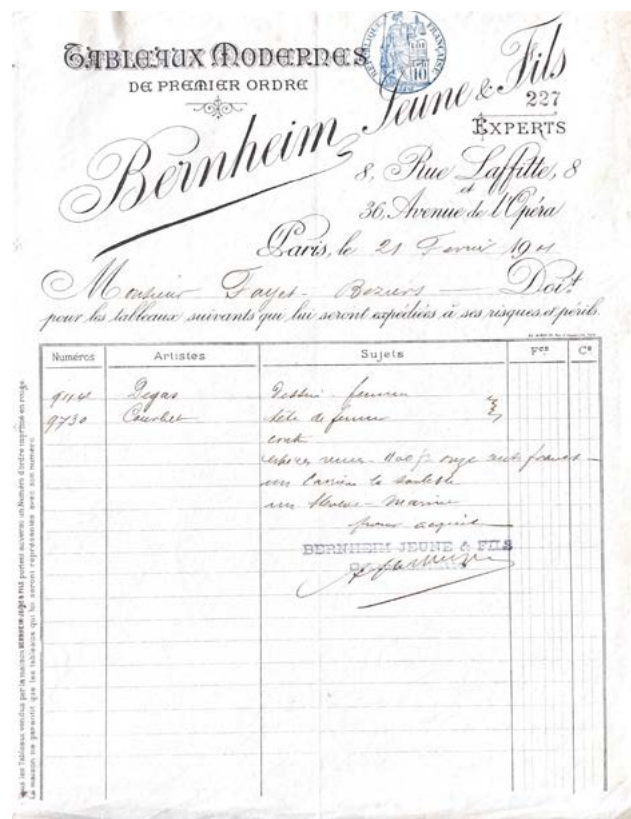 TABLEAUX MODERNES
DE PREMIER ORDRE
RÉPUBLIQUE FRANÇAISE
10
Bernheim Jeune & Fils
227
EXPERTS
8, Rue Laffitte, 8
et
36, Avenue de l'Opéra
Paris, le 21 Fevrier 1901
Monsieur Fayet - Beziers — Doit
pour les tableaux suivants qui lui seront expédiées à ses risques et périls.
Numéros Artistes Sujets Fcs Cs
Degas Dessin femme
9730 Courbet tête de femme
contre
especes recues 1100 f onze cents francs
un Carrière
un Marine
pour acquit
BERNHEIM JEUNE & FILS
Tous les Tableaux vendus par la maison BERNHEIM JEUNE & FILS portent au verso un Numéro d'ordre imprimé en rouge.
La maison ne garantit que les tableaux qui lui seront représentés avec son numéro.